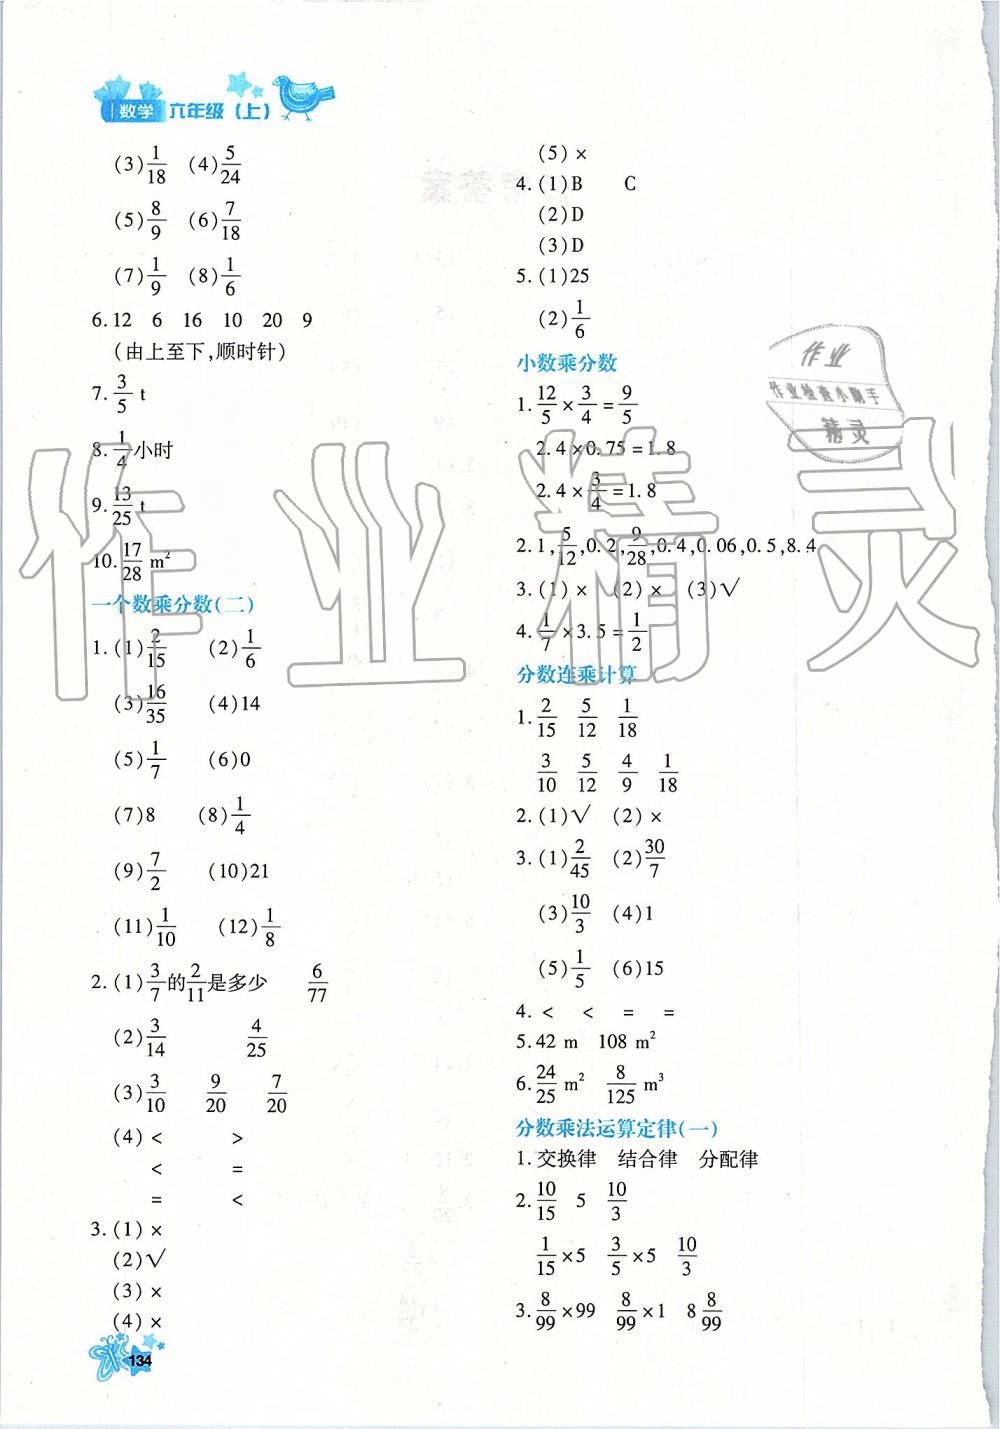 数学 六年级(上)
(3)1/18 (4)5/24
(5)8/9 (6)7/18
(7)1/9 (8)1/6
6.12 6 16 10 20 9
(由上至下,顺时针)
7.3/5 t
8.1/4小时
9.13/25 t
10.17/28 m²
一个数乘分数(二)
1.(1)2/15 (2)1/6
(3)16/35 (4)14
(5)1/7 (6)0
(7)8 (8)1/4
(9)7/2 (10)21
(11)1/10 (12)1/8
2.(1)3/7的2/11是多少 6/77
(2)3/14 4/25
(3)3/10 9/20 7/20
(4)< >
< =
= <
3.(1)×
(2)√
(3)×
(4)×
134
(5)×
4.(1)B C
(2)D
(3)D
5.(1)25
(2)1/6
小数乘分数
1.12/5×3/4=9/5
2.4×0.75=1.8
2.4×3/4=1.8
2.1,5/12,0.2,9/28,0.4,0.06,0.5,8.4
3.(1)× (2)× (3)√
4.1/7×3.5=1/2
分数连乘计算
1.2/15 5/12 1/18
3/10 5/12 4/9 1/18
2.(1)√ (2)×
3.(1)2/45 (2)30/7
(3)10/3 (4)1
(5)1/5 (6)15
4.< < = =
5.42 m 108 m²
6.24/25 m² 8/125 m³
分数乘法运算定律(一)
1.交换律 结合律 分配律
2.10/15 5 10/3
1/15×5 3/5×5 10/3
3.8/99×99 8/99×1 8 8/99
作业
作业检查小助手
精灵
作业精灵